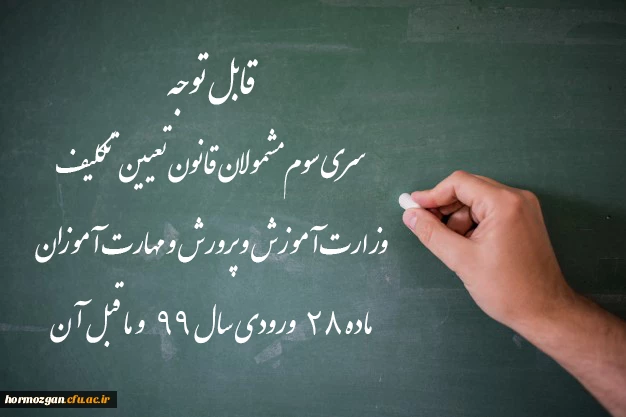 قابل توجه
سری سوم مشمولان قانون تعیین تکلیف
وزارت آموزش و پرورش و مهارت آموزان
ماده ۲۸ ورودی سال ۹۹ و ماقبل آن
hormozgan.cfu.ac.ir